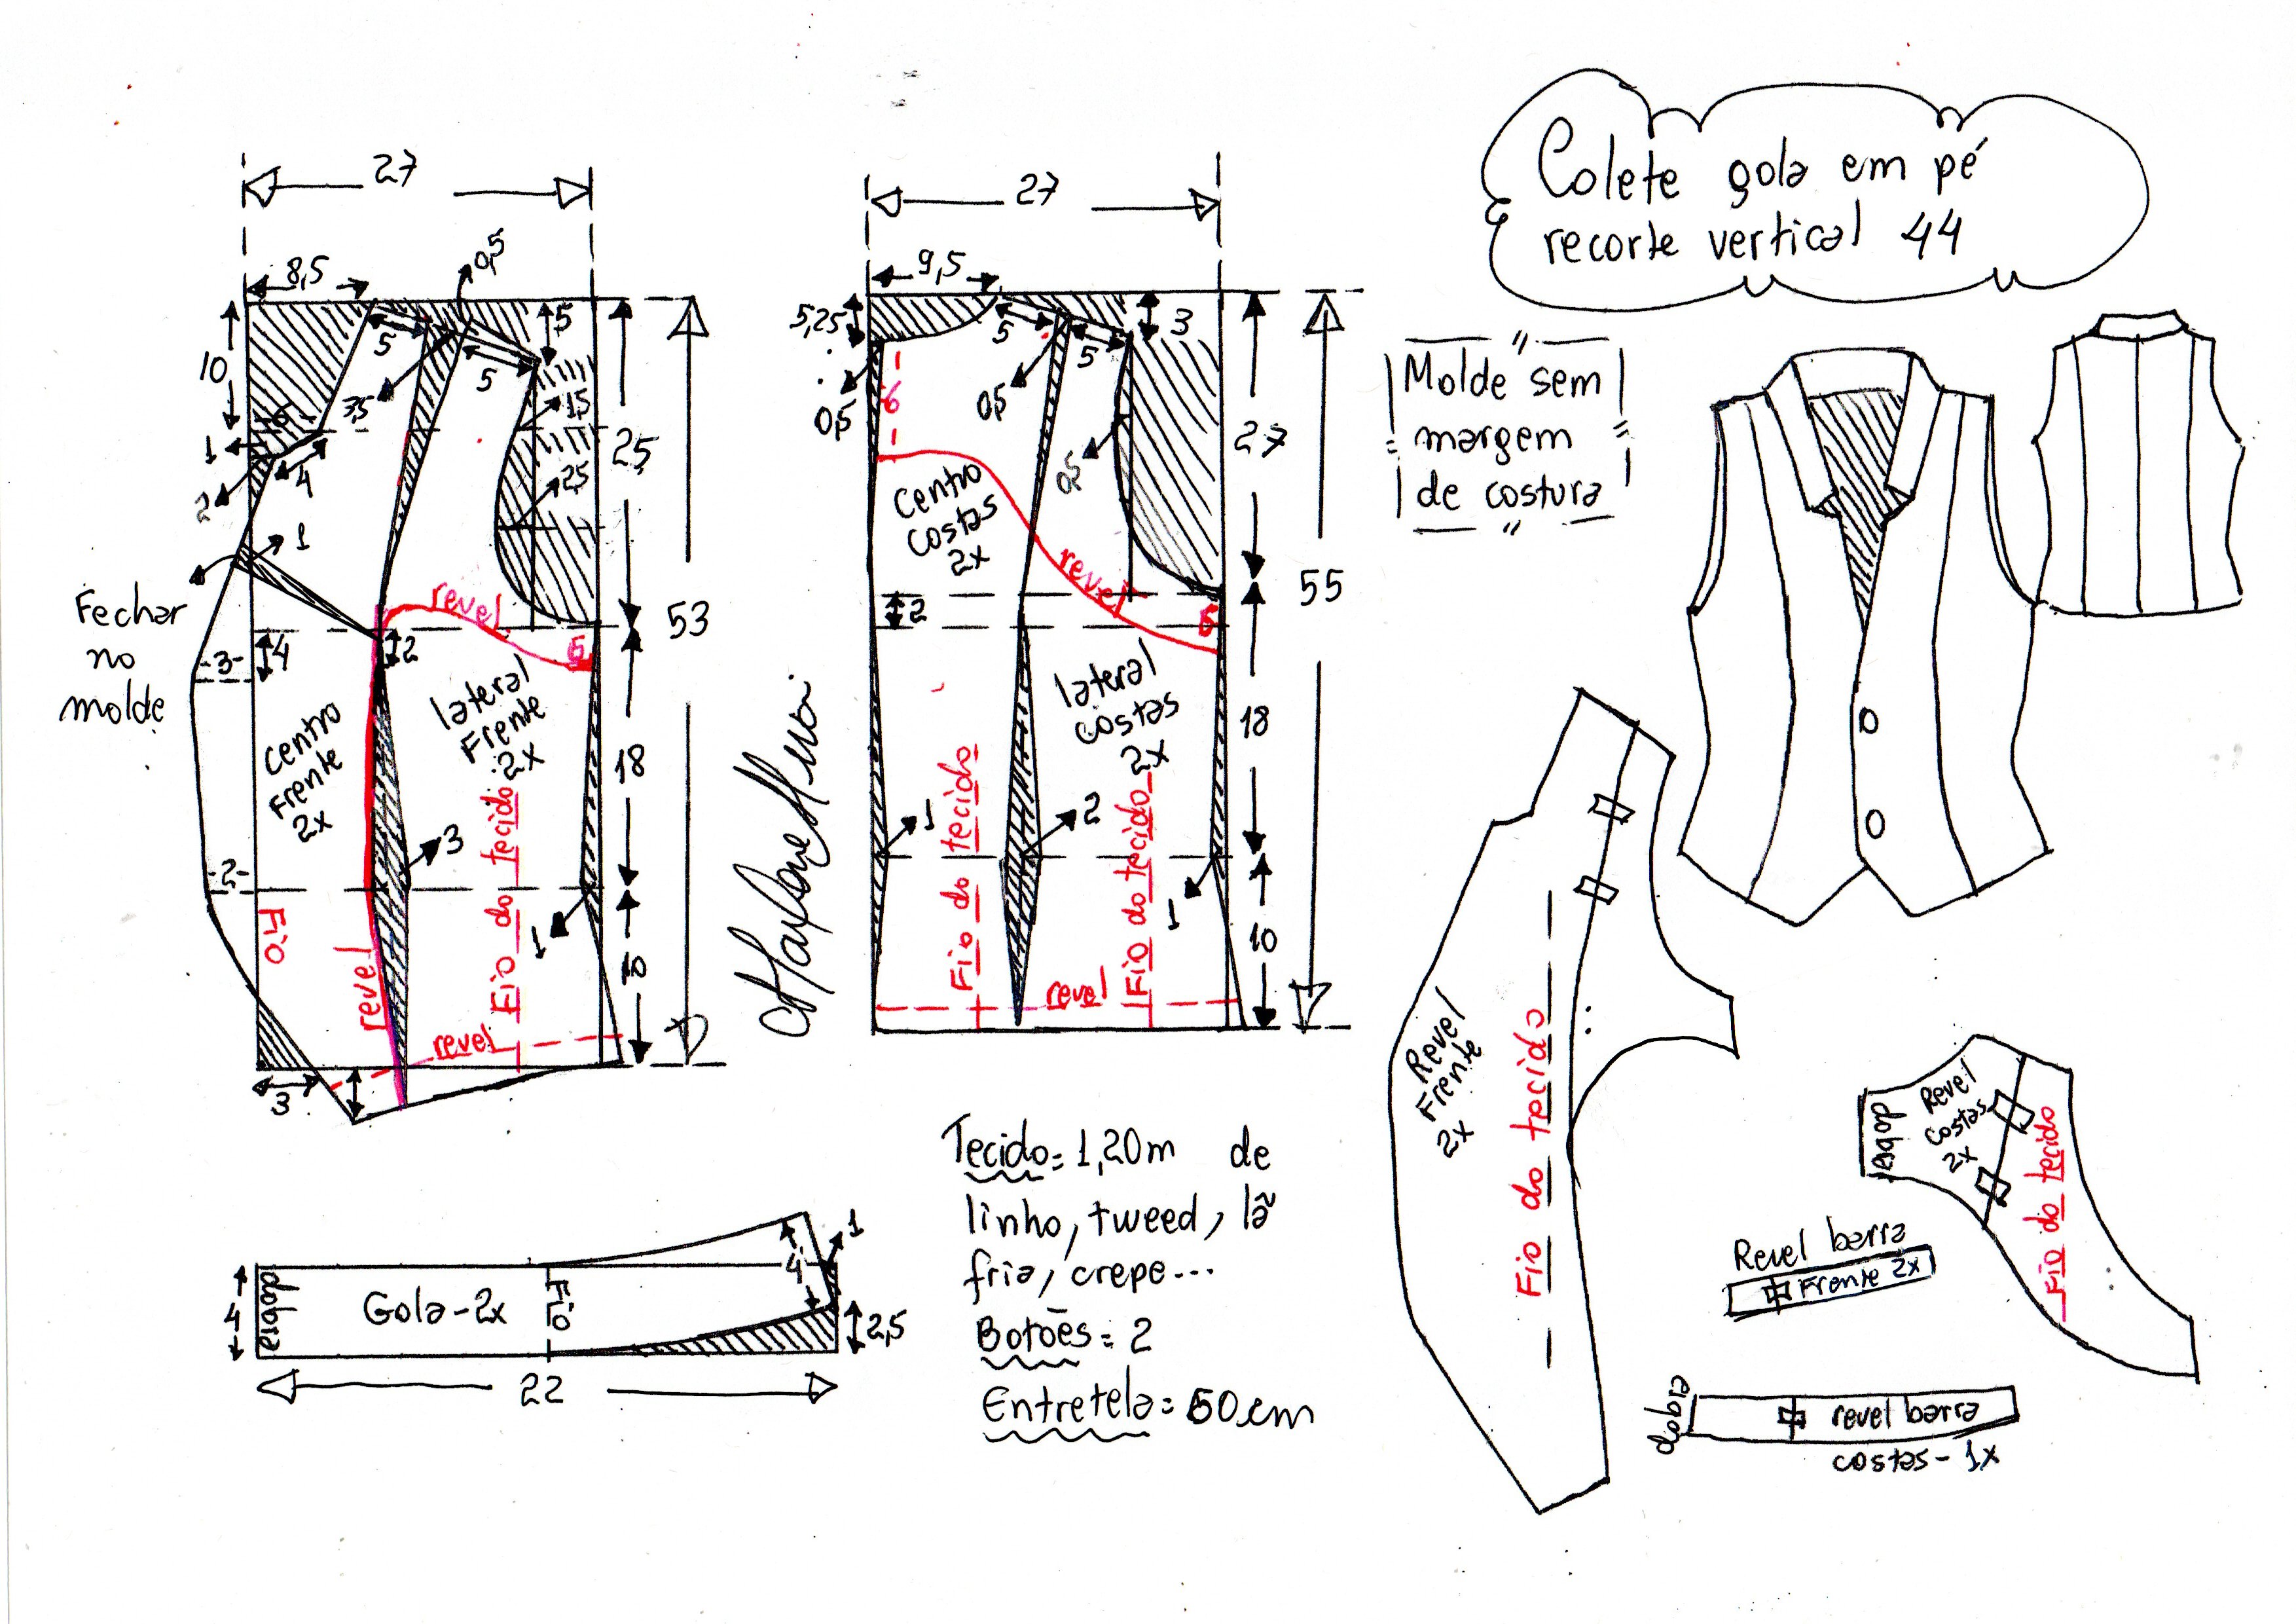 Colete gola em pé
recorte vertical 44
Molde sem
margem
de costura
27
8,5
0,5
10
5
3,5
5
5
1,5
2,5
25
6
1
2
4
1
Fechar
no
molde
3
4
2
revel
5
53
centro
Frente
2x
lateral
Frente
2x
18
3
2
Fio
revel
Fio do tecido
1
10
revel
3
27
9,5
5,25
5
5
3
0,5
6
0,5
0,5
27
centro
costas
2x
revel
2
6
55
lateral
costas
2x
18
1
2
1
Fio do tecido
Fio do tecido
10
revel
4
dobra
Gola-2x
Fio
4
1
2,5
22
Tecido= 1,20m de
linho, tweed, lã
fria, crepe...
Botões= 2
Entretela= 60cm
Revel
Frente
2x
Fio do tecido
dobra
Revel
costas
2x
Fio do tecido
Revel barra
Frente 2x
dobra
revel barra
costas- 1x